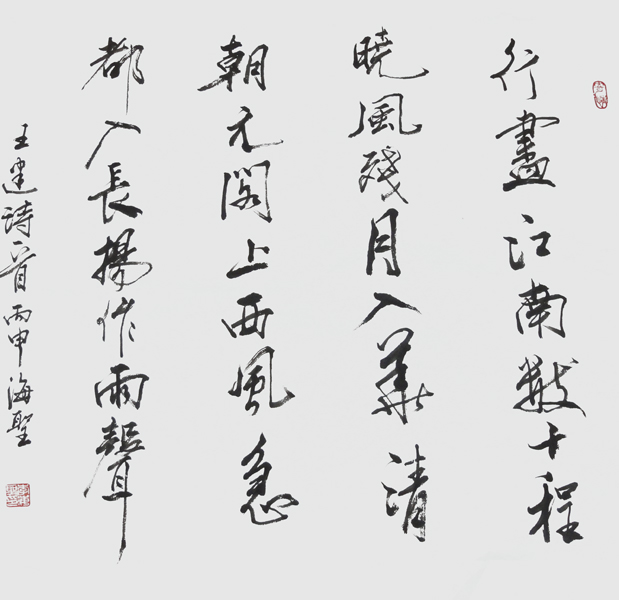 行盡江南數十程
曉風殘月入華清
朝元閣上西風急
都入長楊作雨聲
王建詩一首丙申海聖